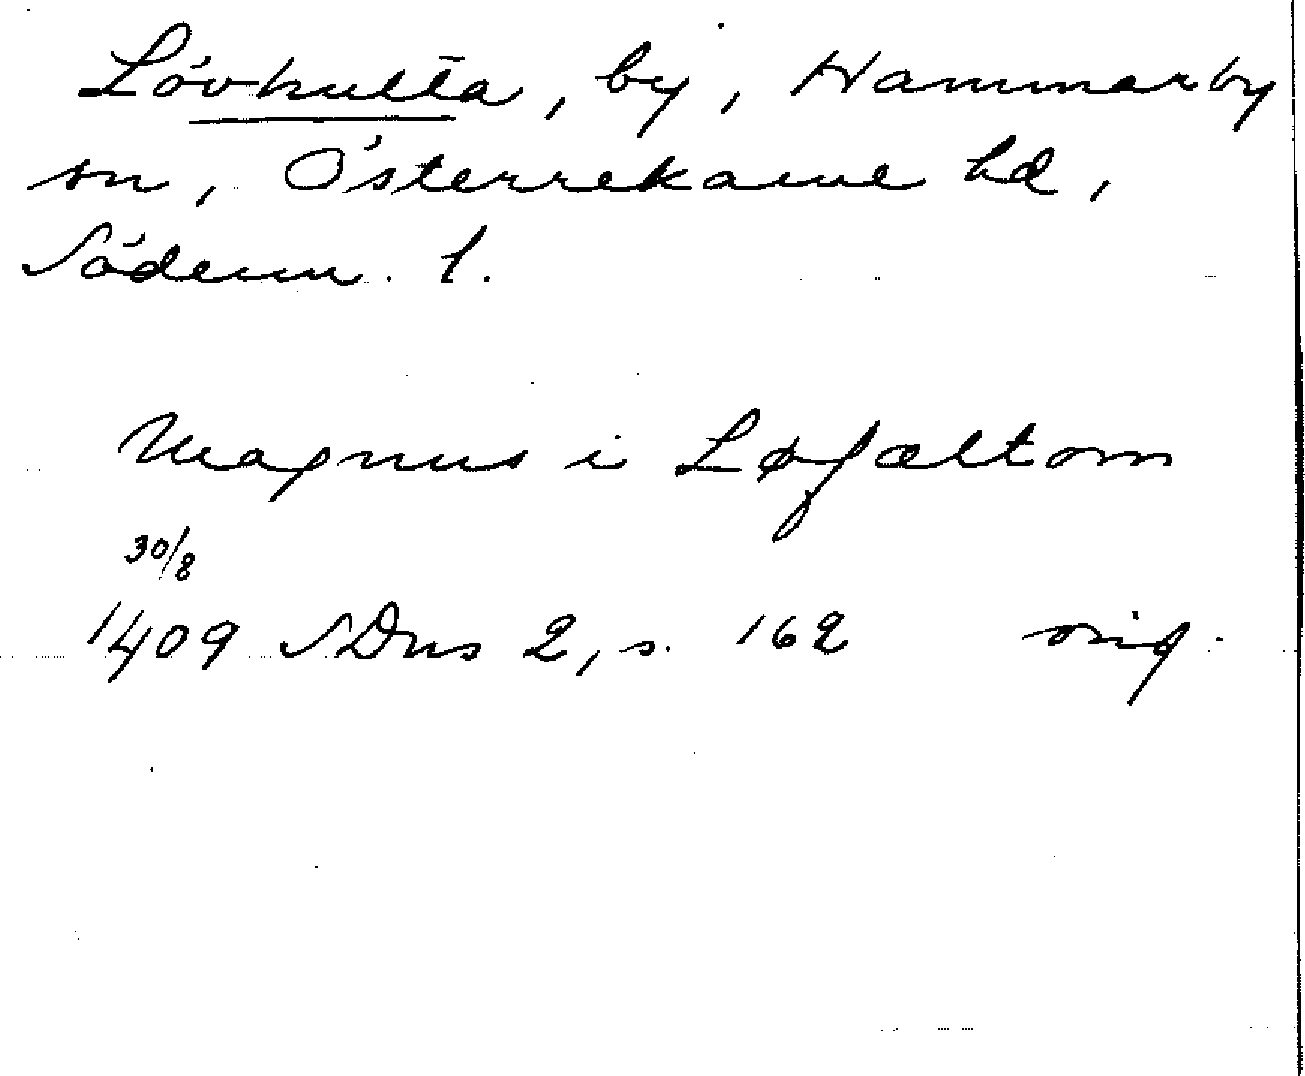 Lövhulta, by, Hammarby
sn, Österrekarne hd,
Söderm. l.
Magnus i Løfæltom
30/8
1409 SDns 2, s. 162 orig.